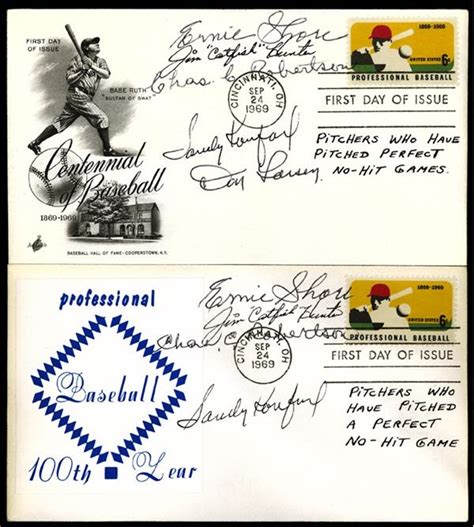 FIRST DAY OF ISSUE
BABE RUTH
"SULTAN OF SWAT"
Centennial
of Baseball
1869-1969
BASEBALL HALL OF FAME-COOPERSTOWN, N.Y.
Ernie Shore
Jim "Catfish" Hunter
Chas. C. Robertson
Sandy Koufax
Don Larsen
CINCINNATI, OH
SEP
24
1969
1869-1969
UNITED STATES 6c
PROFESSIONAL BASEBALL
FIRST DAY OF ISSUE
PITCHERS WHO HAVE
PITCHED PERFECT
NO-HIT GAMES.
professional
Baseball
100th Year
Ernie Shore
Jim "Catfish" Hunter
Chas. C. Robertson
Sandy Koufax
CINCINNATI, OH
SEP
24
1969
1869-1969
UNITED STATES 6c
PROFESSIONAL BASEBALL
FIRST DAY OF ISSUE
PITCHERS WHO
HAVE PITCHED
A PERFECT
NO-HIT GAME